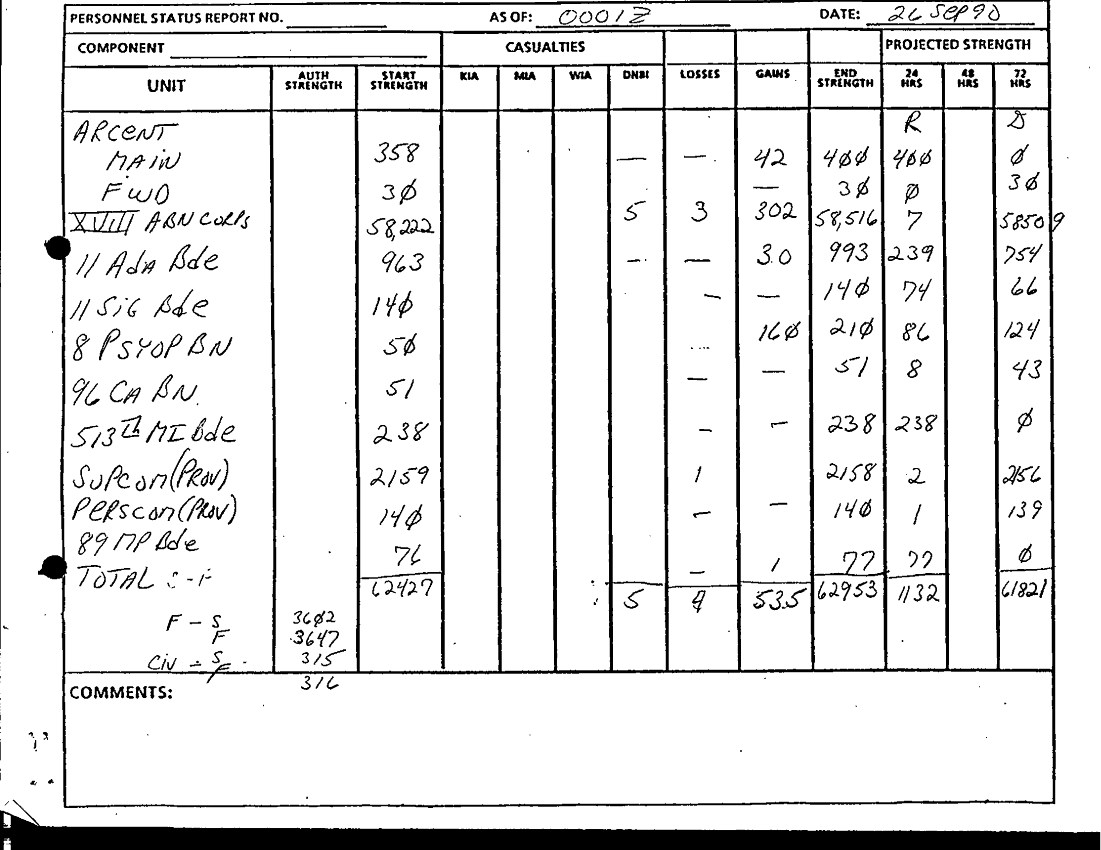 PERSONNEL STATUS REPORT NO. AS OF: 0001Z DATE: 26 SEP 90
COMPONENT CASUALTIES PROJECTED STRENGTH
UNIT AUTH STRENGTH START STRENGTH KIA MIA WIA DNBI LOSSES GAINS END STRENGTH 24 HRS 48 HRS 72 HRS
ARCENT R D
MAIN 358 — — 42 4ØØ 4ØØ Ø
FWD 3Ø — 3Ø Ø 3Ø
XVIII ABN CORPS 58,222 5 3 302 58,516 7 58509
11 ADA Bde 963 — — 30 993 239 754
11 SIG Bde 14Ø — — 14Ø 74 66
8 PSYOP BN 5Ø — 16Ø 21Ø 86 124
96 CA BN. 51 — — 51 8 43
513th MI Bde 238 — — 238 238 Ø
SUPCOM (PROV) 2159 1 2158 2 2156
PERSCOM (PROV) 14Ø — — 14Ø 1 139
89 MP Bde 76 — 1 77 77 Ø
TOTAL 62427 5 4 535 62953 1132 61821
F - S 36Ø2
F 3647
CIV - S 315
F 316
COMMENTS: